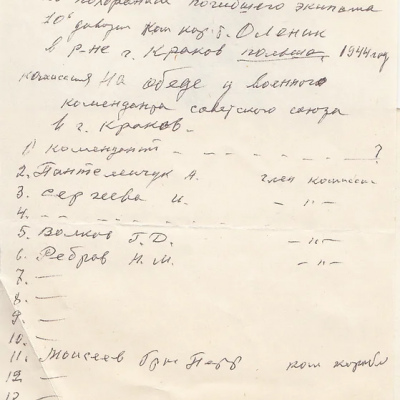 похоронам погибшего экипажа
10й дивизии Ком кор. т. Оленик
в р-не г. Краков польша, 1944 год
комиссия на обеде у военного
коменданта советского союза
в г. Краков.
1. Комендант - - - - - - - - ?
2. Пантелейчук А. член комиссии
3. Сергеева И. - " -
4. - - - - - - - - -
5. Волков Г. Д. - " -
6. Ребров Н. М. - " -
7. —
8. —
9. —
10. —
11. Моисеев Гр. Петр ком корабл
12 —
13 —